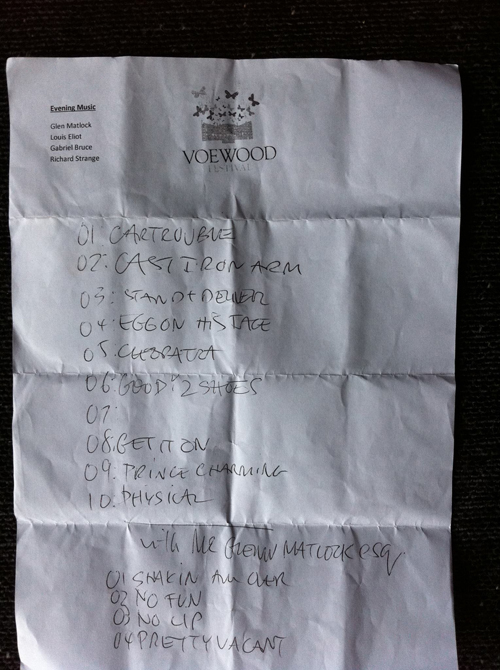 Evening Music
Glen Matlock
Louis Eliot
Gabriel Bruce
Richard Strange
VOEWOOD
FESTIVAL
01 CARTROUBLE
02: CAST IRON ARM
03: STAND + DELIVER
04: EGG ON HIS FACE
05. CLEOPATRA
06: GOODY 2 SHOES
07:
08. GET IT ON
09. PRINCE CHARMING
10. PHYSICAL
with Mr GLENN MATLOCK esq.
01 SHAKIN ALL OVER
02 NO FUN
03 NO LIP
04 PRETTY VACANT